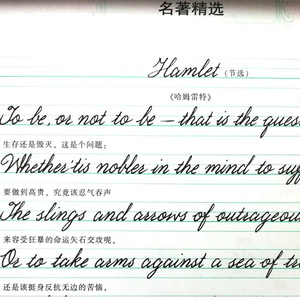 名著精选
Hamlet (节选)
《哈姆雷特》
To be, or not to be – that is the
生存还是毁灭，这是个问题；
Whether 'tis nobler in the mind to
要做到高贵，究竟该忍气吞声
The slings and arrows of
来容受狂暴的命运矢石交攻呢，
Or to take arms against a sea of
还是该挺身反抗无边的苦恼，